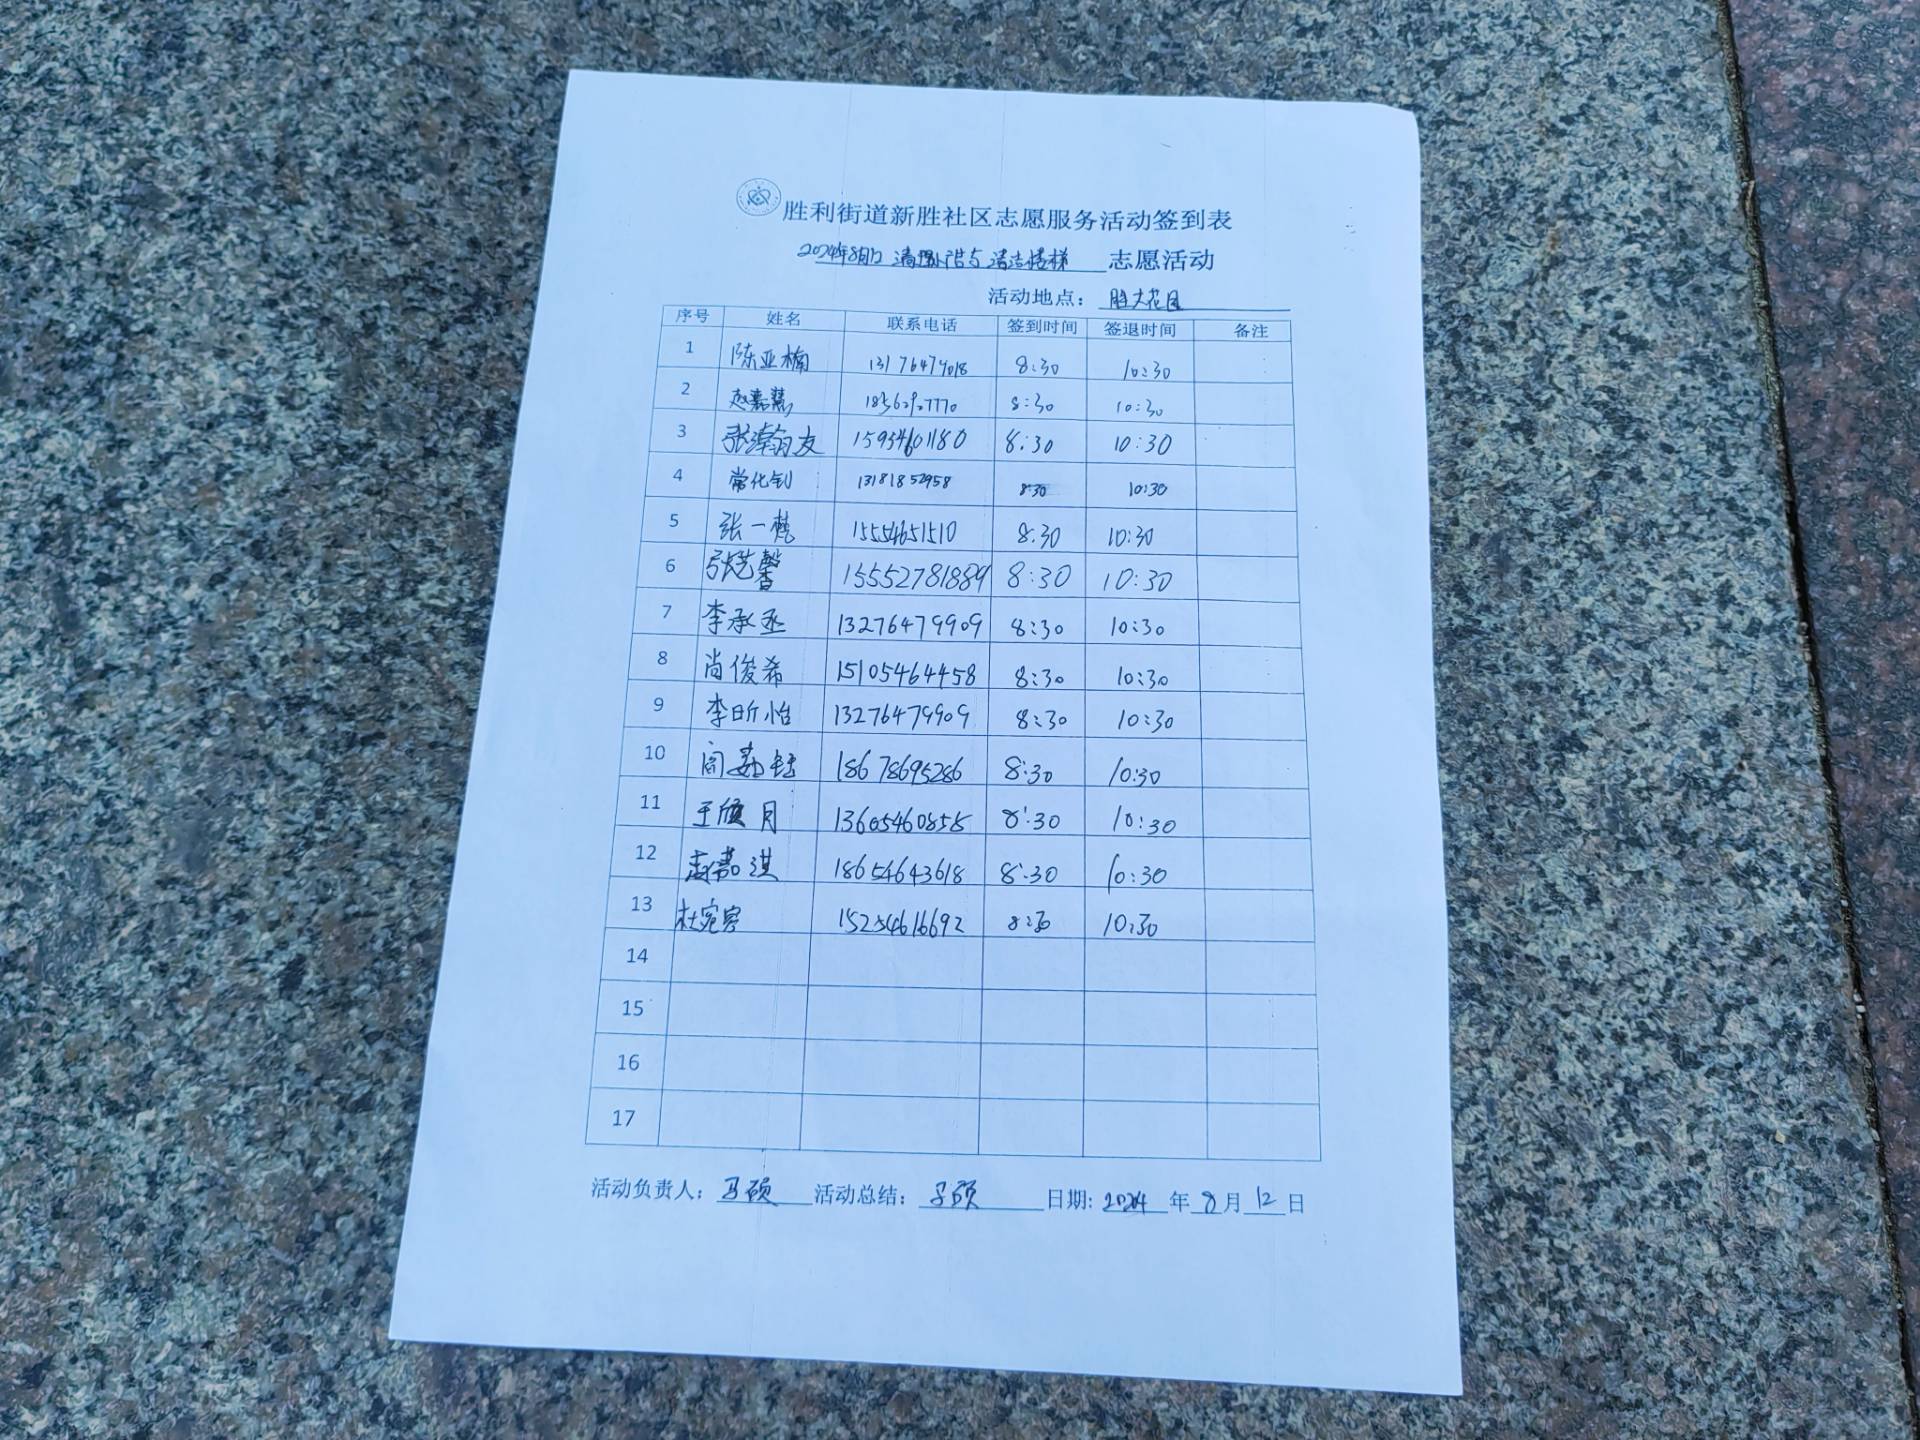 胜利街道新胜社区志愿服务活动签到表
2024年8月12 清理 与清洁楼梯 志愿活动
活动地点： 胜大花园
序号 姓名 联系电话 签到时间 签退时间 备注
1 陈亚楠 13176479018 8:30 10:30
2 赵嘉慧 8:30 10:30
3 15934601180 8:30 10:30
4 常化钊 13181852958 8:30 10:30
5 张一梵 15554651510 8:30 10:30
6 张艺馨 15552781889 8:30 10:30
7 李承丞 13276479909 8:30 10:30
8 尚俊希 15105464458 8:30 10:30
9 李昕怡 13276479909 8:30 10:30
10 18678695286 8:30 10:30
11 13605460858 8:30 10:30
12 赵嘉淇 18654643618 8:30 10:30
13 15254616692 8:30 10:30
14
15
16
17
活动负责人： 马硕 活动总结： 马硕 日期: 2024 年 8 月 12 日